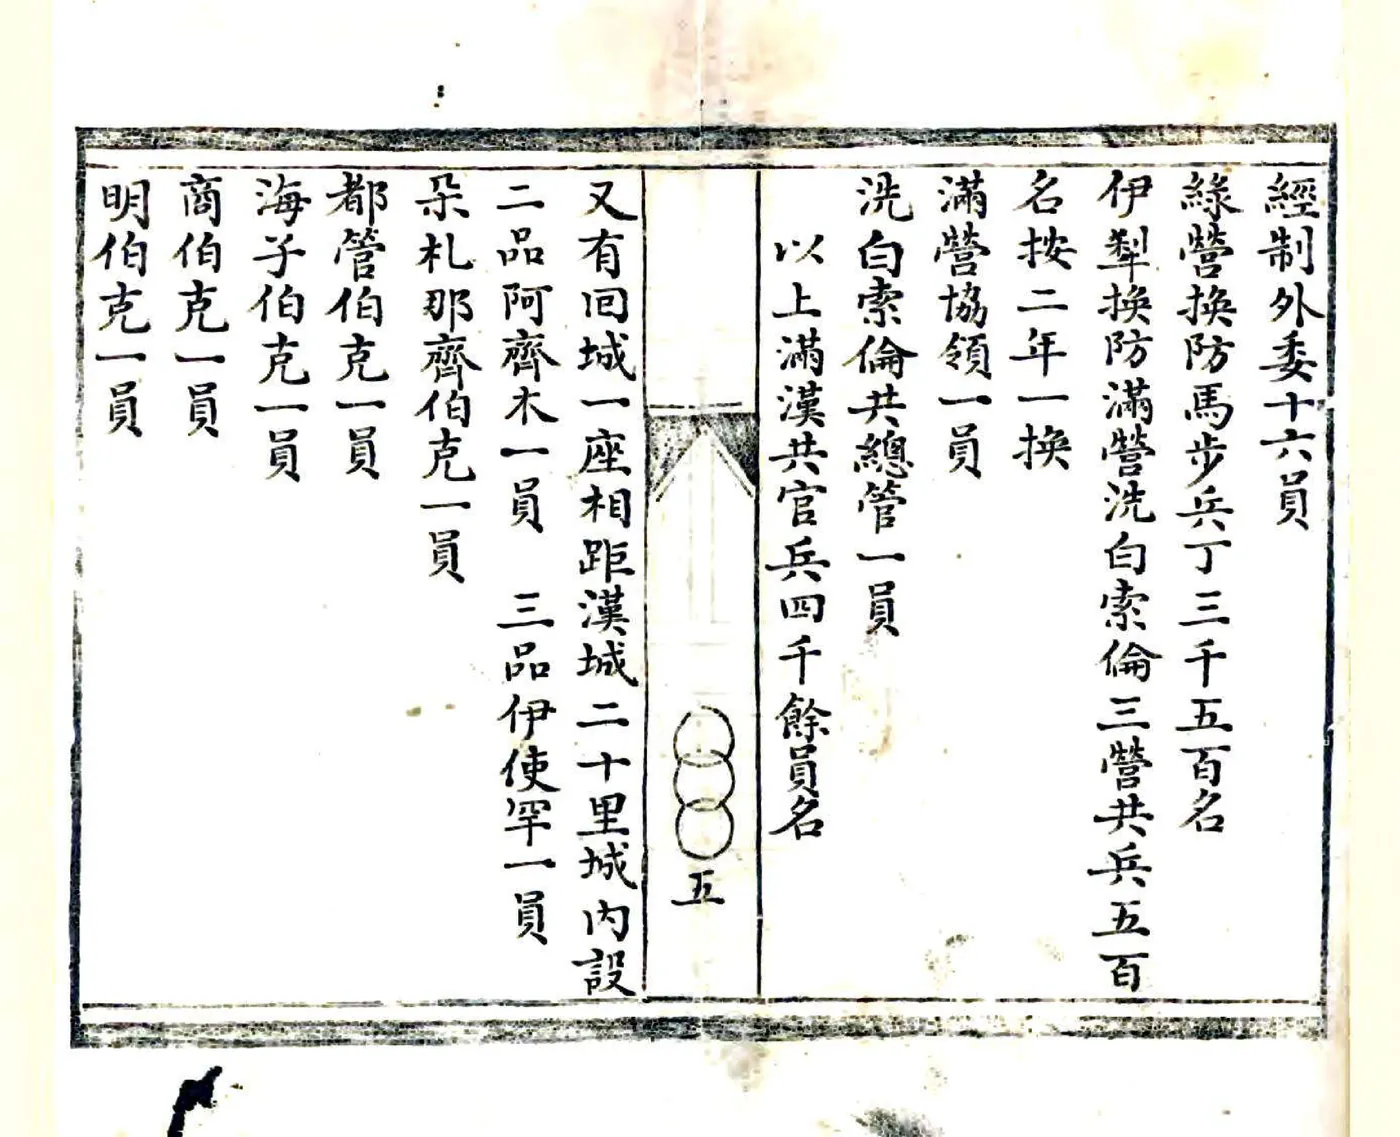 經制外委十六員
綠營換防馬步兵丁三千五百名
伊犁換防滿營洗白索倫三營共兵五百
名按二年一換
滿營協領一員
洗白索倫共總管一員
以上滿漢共官兵四千餘員名
五
又有回城一座相距漢城二十里城內設
二品阿齊木一員 三品伊使罕一員
朵札那齊伯克一員
都管伯克一員
海子伯克一員
商伯克一員
明伯克一員